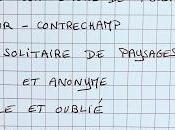 OR - CONTRECHAMP
SOLITAIRE DE PAYSAGES
ET ANONYME
LE ET OUBLIÉ